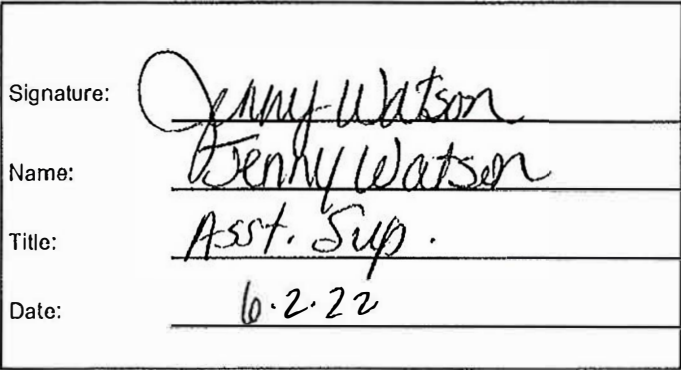 Signature: Jenny Watson
Name: Jenny Watson
Title: Asst. Sup.
Date: 6.2.22